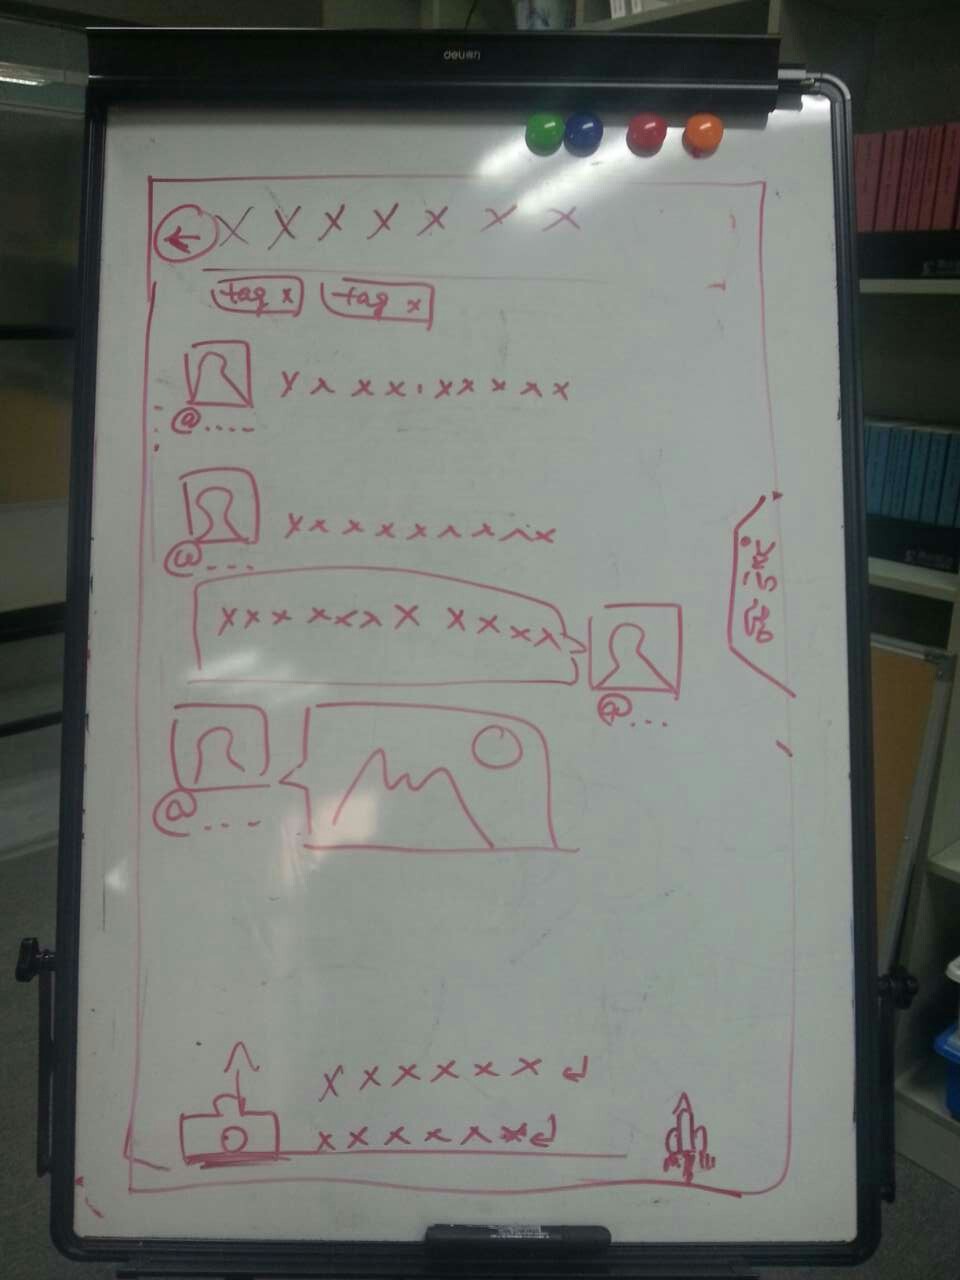 deli 得力
← X X X X X X X
tag x tag x
x x x x x . x x x x x
@ . . . . .
x x x x x x x x x x
@ . . . .
x x x x x x x X x x x x
@ . . .
@ . . . .
X x x x x x ↵
x x x x x x ↵